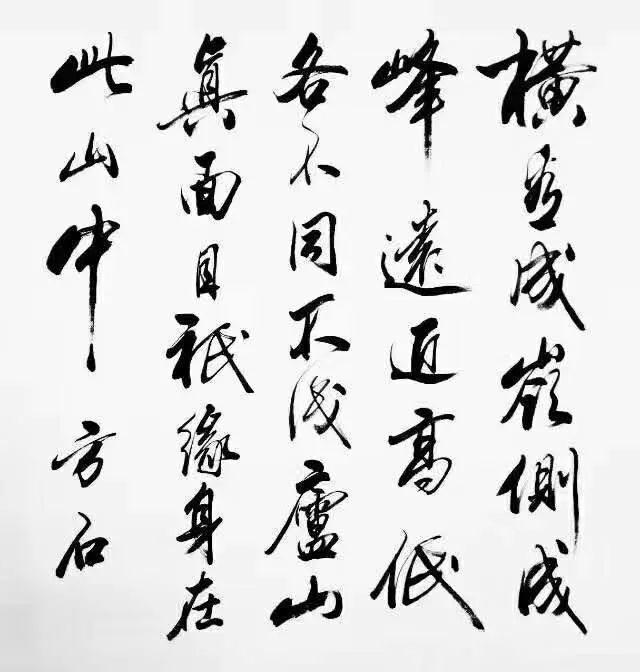 橫看成嶺側成
峰遠近高低
各不同不識廬山
眞面目祇緣身在
此山中 方石